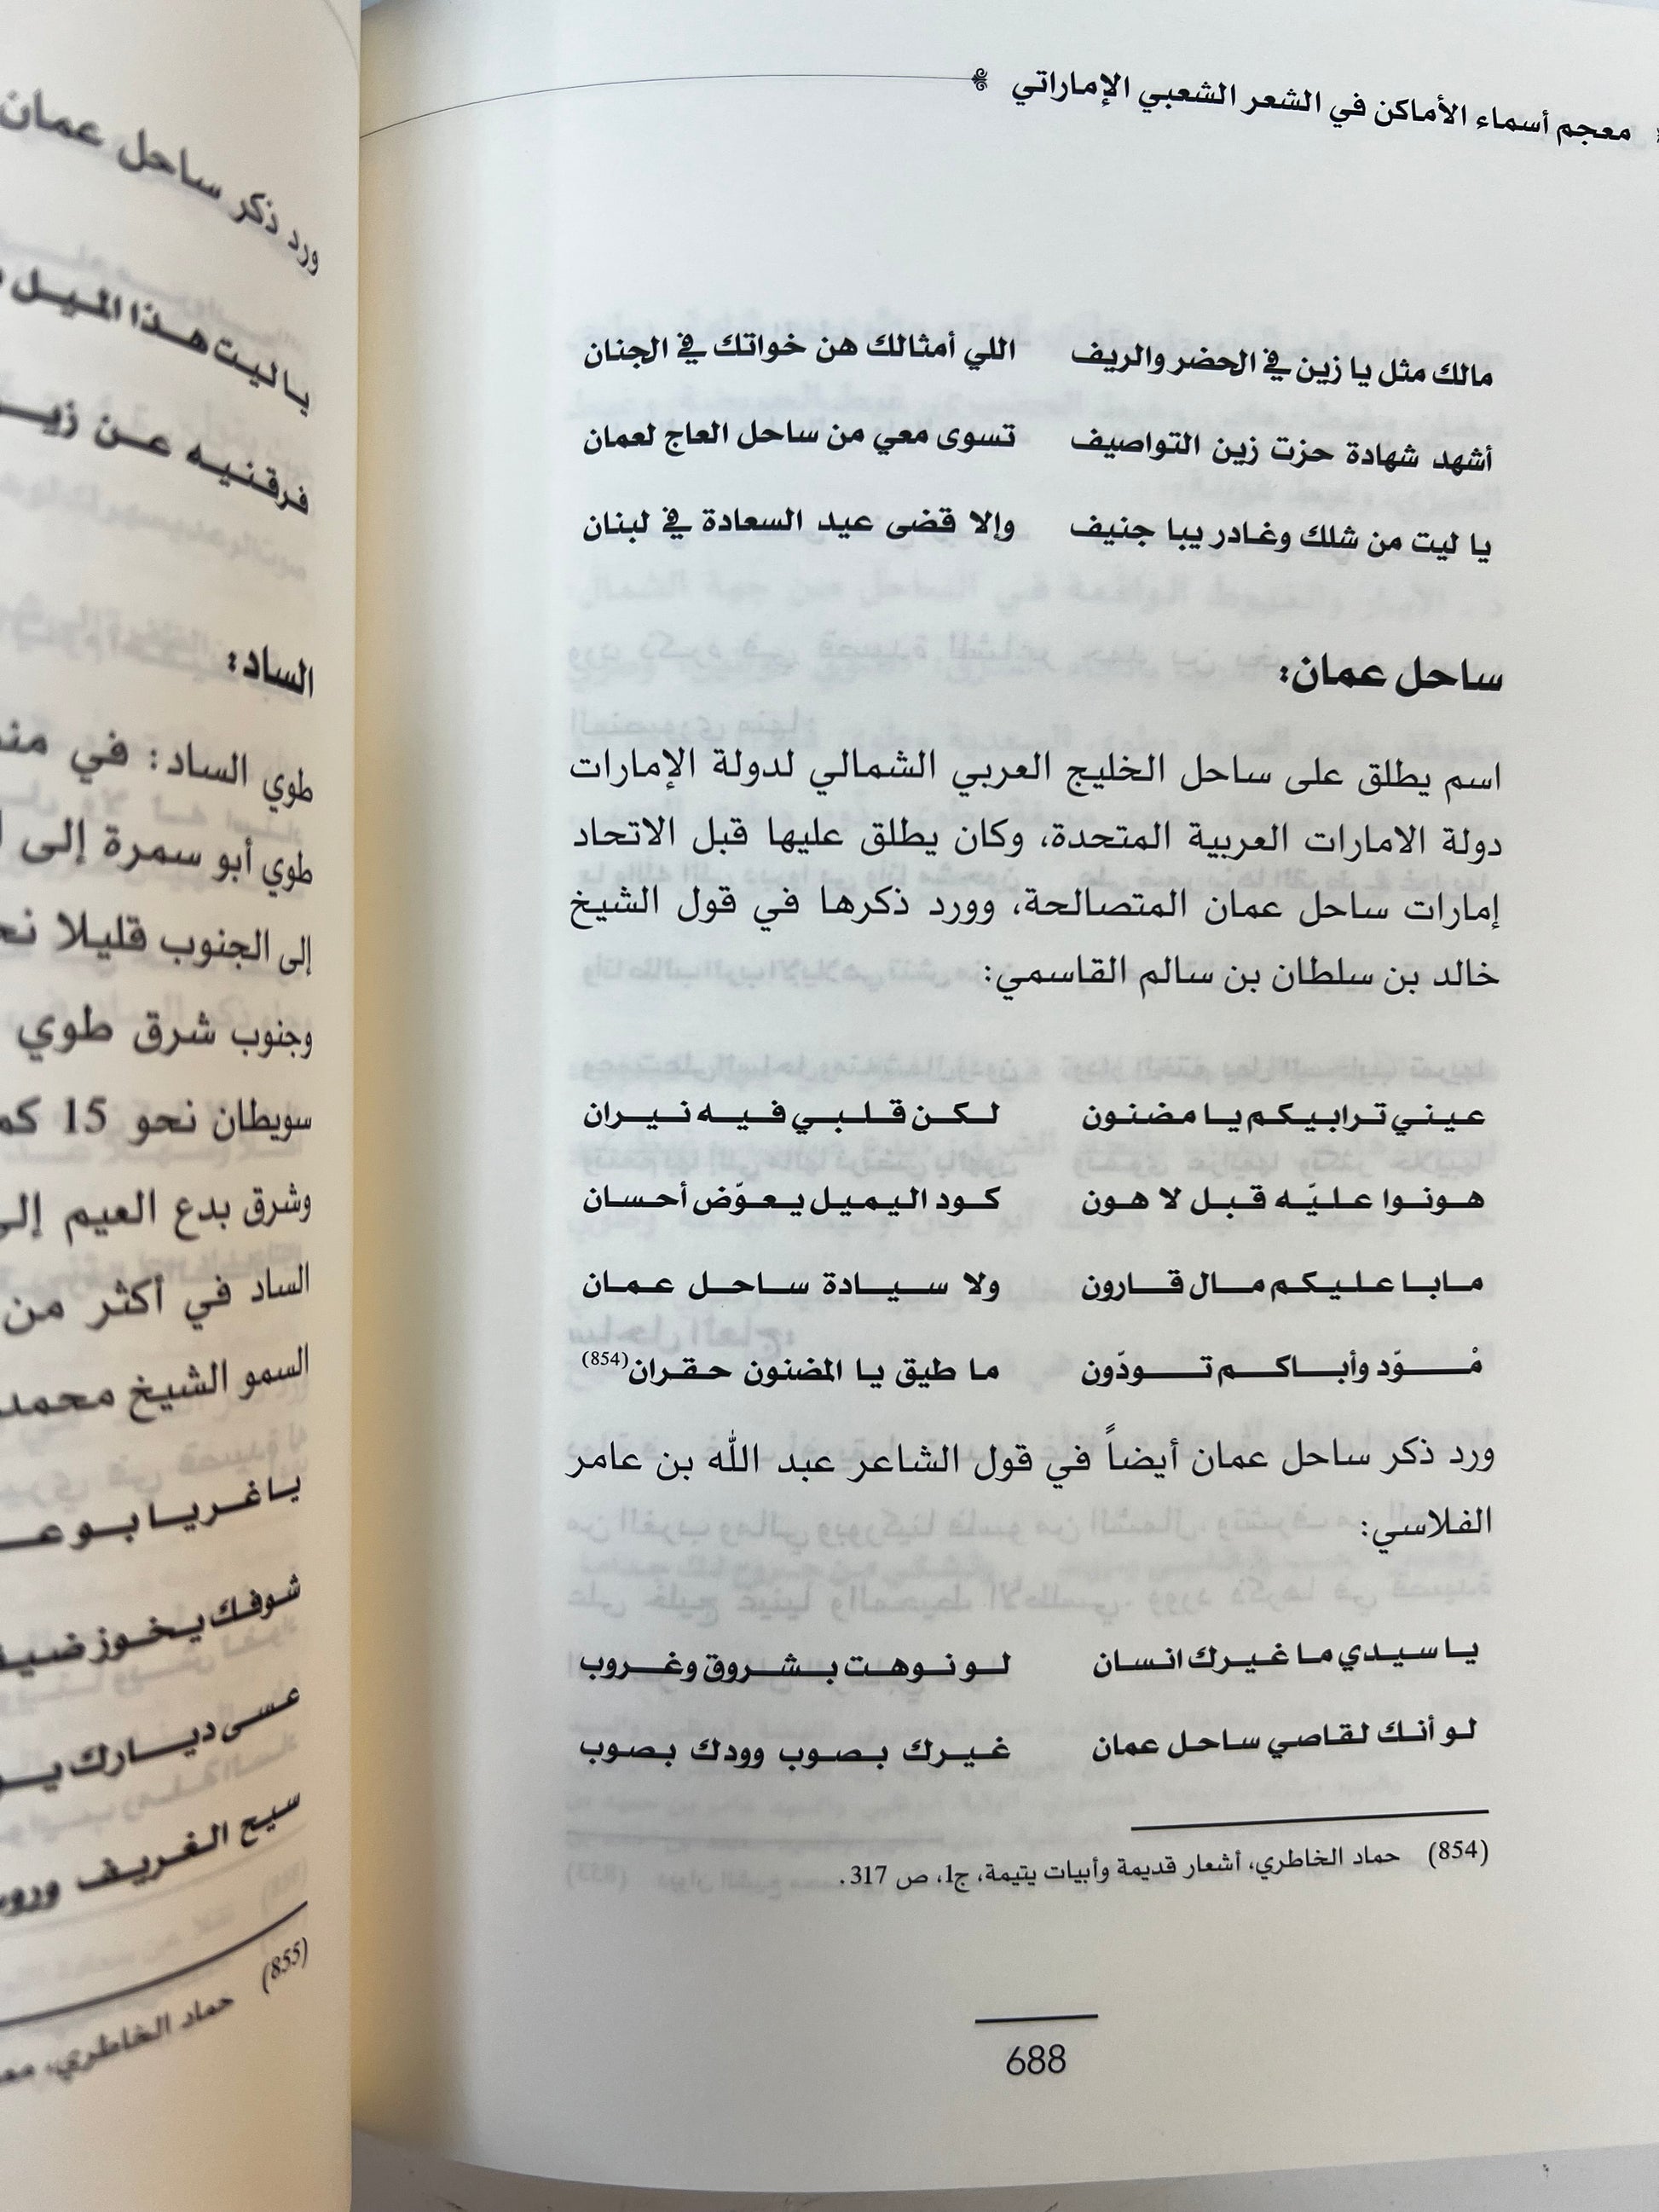 معجم أسماء الأماكن في الشعر الشعبي الإماراتي
مالك مثل يا زين في الحضر والريف اللي أمثالك هن خواتك في الجنان
أشهد شهادة حزت زين التواصيف تسوى معي من ساحل العاج لعمان
يا ليت من شلك وغادر يبا جنيف وإلا قضى عيد السعادة في لبنان
ساحل عمان:
اسم يطلق على ساحل الخليج العربي الشمالي لدولة الإمارات
دولة الامارات العربية المتحدة، وكان يطلق عليها قبل الاتحاد
إمارات ساحل عمان المتصالحة، وورد ذكرها في قول الشيخ
خالد بن سلطان بن سالم القاسمي:
عيني ترابيكم يا مضنون لكن قلبي فيه نيران
هونوا عليّه قبل لا هون كود اليميل يعوّض أحسان
مابا عليكم مال قارون ولا سيادة ساحل عمان
مْوّد وأباكم تودّون ما طيق يا المضنون حقران(854)
ورد ذكر ساحل عمان أيضاً في قول الشاعر عبد الله بن عامر
الفلاسي:
يا سيدي ما غيرك انسان لو نوهت بشروق وغروب
لو أنك لقاصي ساحل عمان غيرك بصوب وودك بصوب
(854) حماد الخاطري، أشعار قديمة وأبيات يتيمة، ج1، ص 317.
688
ورد ذكر ساحل عمان
يا ليت هذا الميل
فرقنيه عن
الساد:
طوي الساد: في
طوي أبو سمرة إلى
إلى الجنوب قليلا
وجنوب شرق طوي
سويطان نحو 15
وشرق بدع العيم
الساد في أكثر من
السمو الشيخ محمد
يا غريا بو
شوفك يخوز
عسى ديارك
سيح الغريف
(855) حماد الخاطري،